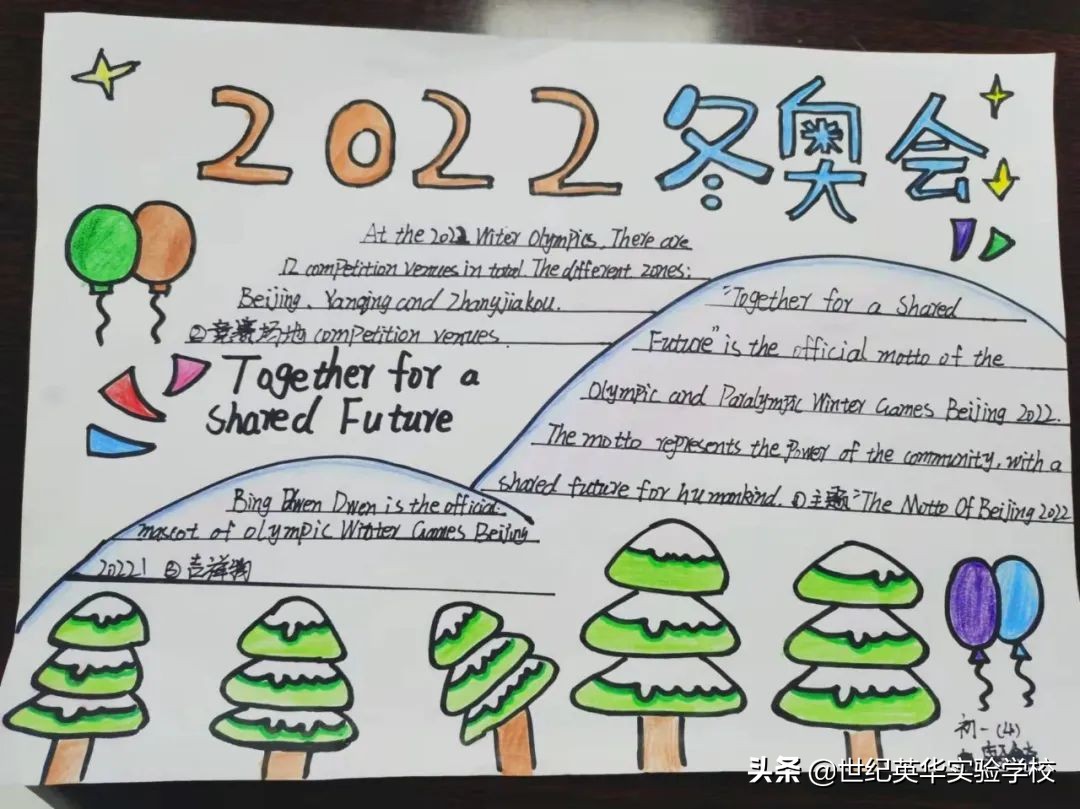 2022 冬奥会
At the 2022 Witer Olympics, There are
12 competition venues in total. The different zones:
Beijing、Yanqing and Zhangjiakou.
②竞赛场地 competition venues.
Together for a
shared Future
"Together for a Shared
Future" is the official motto of the
Olympic and Paralympic Winter Games Beijing 2022.
The motto represents the power of the community, with a
shared future for humankind. ①主题 "The Motto Of Beijing 2022
Bing Dwen Dwen is the official
mascot of Olympic Winter Games Beijing
2022! ③吉祥物
初一(4)
头条 @世纪英华实验学校